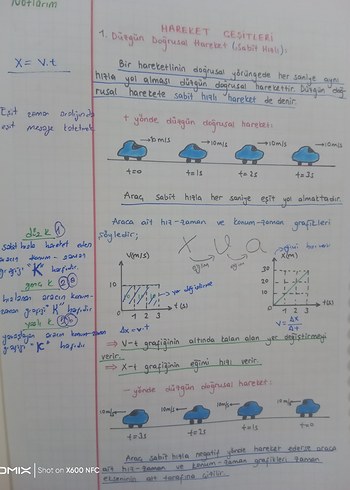 Notlarım
HAREKET ÇEŞİTLERİ
1. Düzgün Doğrusal Hareket (Sabit Hızlı):
X = V.t
Bir hareketlinin doğrusal yörüngede her saniye aynı
hızla yol alması düzgün doğrusal harekettir. Düzgün doğ-
rusal harekete sabit hızlı hareket de denir.
Eşit zaman aralığında
eşit mesafe
+ yönde düzgün doğrusal hareket:
→10m/s →10m/s →10m/s →10m/s
t=0 t=1s t=2s t=3s
Araç sabit hızla her saniye eşit yol almaktadır.
Araca ait hız-zaman ve konum-zaman grafikleri
şöyledir;
X V a
eğim eğim
düz k 1
sabit hızla hareket eden
aracın konum-zaman
grafiği "K"
hızlanan aracın konum-
zaman grafiği "K"
yavaşlayan aracın konum-zaman
grafiği "K"
V(m/s)
10
1 2 3 t(s)
yer değiştirme
Δx = v.t
X(m)
30
20
10
1 2 3 t(s)
V = Δx/Δt
⇒ V-t grafiğinin altında kalan alan yer değiştirmeyi
verir.
⇒ X-t grafiğinin eğimi hızı verir.
- yönde düzgün doğrusal hareket:
10m/s← 10m/s← 10m/s← 10m/s←
t=3s t=2s t=1s t=0
Araç sabit hızla negatif yönde hareket ederse araca
ait hız-zaman ve konum-zaman grafikleri zaman
ekseninin alt tarafına çizilir.
Shot on X600 NFC